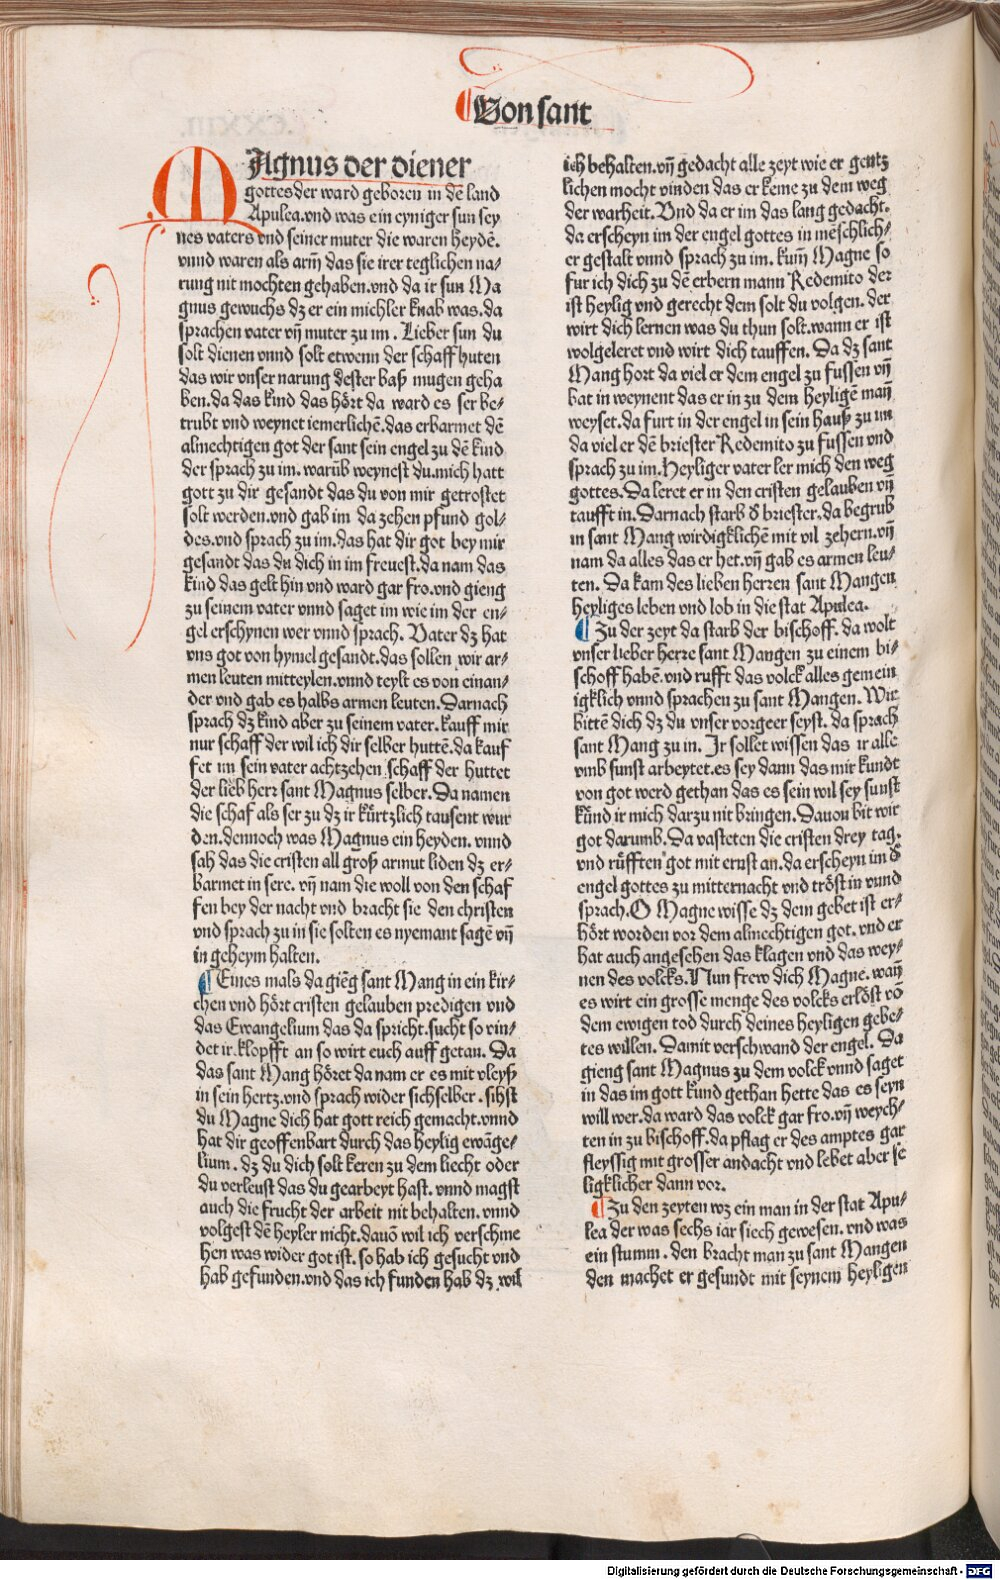 ¶Von sant
MAgnus der diener
gottes der ward geboren in dē land
Apulea.vnd was ein eyniger sun sey
nes vaters vnd seiner muter die waren heydē.
vnnd waren als arm̄ das sie irer teglichen na⸗
rung nit mochten gehaben.vnd da ir sun Ma
gnus gewuchs dz er ein michler knab was.da
sprachen vater vn̄ muter zu im. Lieber sun du
solt dienen vnnd solt etwenn der schaff huten
das wir vnser narung dester baß mugen geha
ben.da das kind das hört da ward es ser be⸗
trubt vnd weynet iemerlichē.das erbarmet dē
almechtigen got der sant sein engel zu dē kind
der sprach zu im.warūb weynest du.mich hatt
gott zu dir gesandt das du von mir getrostet
solt werden.vnd gab im da zehen pfund gol⸗
des.vnd sprach zu im.das hat dir got bey mir
gesandt das du dich in im freuest.da nam das
kind das gelt hin vnd ward gar fro.vnd gieng
zu seinem vater vnnd saget im wie im der en⸗
gel erschynen wer vnnd sprach. Vater dz hat
vns got von hymel gesandt.das sollen wir ar⸗
men leuten mitteylen.vnnd teylt es von einan⸗
der vnd gab es halbs armen leuten.Darnach
sprach dz kind aber zu seinem vater.kauff mir
nur schaff der wil ich dir selber huttē.da kauf
fet im sein vater achtzehen schaff der huttet
der lieb herr sant Magnus selber.Da namen
die schaf als ser zu dz ir kürtzlich tausent wur
den.dennoch was Magnus ein heyden. vnnd
sah das die cristen all groß armut liden dz er⸗
barmet in sere. vn̄ nam die woll von den schaf
fen bey der nacht vnd bracht sie den christen
vnd sprach zu in sie solten es nyemant sagē vn̄
in geheym halten.
¶Eines mals da giēg sant Mang in ein kir⸗
chen vnd hört cristen gelauben predigen vnd
das Ewangelium das da spricht.sucht so vin⸗
det ir.klopfft an so wirt euch auff getan. Da
das sant Mang höret da nam er es mit vleyß
in sein hertz.vnd sprach wider sichselber. sihst
du Magne dich hat gott reich gemacht.vnnd
hat dir geoffenbart durch das heylig ewāge⸗
lium. dz du dich solt keren zu dem liecht oder
du verleust das du gearbeyt hast. vnnd magst
auch die frucht der arbeit nit behalten. vnnd
volgest dē heyler nicht.dauō wil ich verschme
hen was wider got ist. so hab ich gesucht vnd
hab gefunden.vnd das ich funden hab dz wil
ich behalten.vn̄ gedacht alle zeyt wie er gentz
lichen mocht vinden das er keme zu dem weg
der warheit. Vnd da er im das lang gedacht.
da erscheyn im der engel gottes in mēschlich⸗
er gestalt vnnd sprach zu im. kum̄ Magne so
fur ich dich zu dē erbern mann Redemito der
ist heylig vnd gerecht dem solt du volgen. der
wirt dich lernen was du thun solt.wann er ist
wolgeleret vnd wirt dich tauffen. Da dz sant
Mang hort da viel er dem engel zu fussen vn̄
bat in weynent das er in zu dem heyligē man̄
weyset.da furt in der engel in sein hauß zu im
da viel er dē briester Redemito zu fussen vnd
sprach zu im.Heyliger vater ler mich den weg
gottes.Da leret er in den cristen gelauben vn̄
taufft in.Darnach starb d̕ briester.da begrub
in sant Mang wirdigklichē mit vil zehern.vn̄
nam da alles das er het.vn̄ gab es armen leu⸗
ten. Da kam des lieben herren sant Mangen
heyliges leben vnd lob in die stat Apulea.
¶Zu der zeyt da starb der bischoff. da wolt
vnser lieber herre sant Mangen zu einem bi⸗
schoff habē. vnd rufft das volck alles gemein
igklich vnnd sprachen zu sant Mangen. Wir
bittē dich dz du vnser vorgeer seyst. da sprach
sant Mang zu in. Ir sollet wissen das ir alle
vmb sunst arbeytet.es sey dann das mir kundt
von got werd gethan das es sein wil sey sunst
künd ir mich darzu nit bringen. Dauon bit wir
got darumb. Da vasteten die cristen drey tag.
vnd rüfften got mit ernst an.da erscheyn im d̕
engel gottes zu mitternacht vnd tröst in vnnd
sprach.O Magne wisse dz dem gebet ist er⸗
hört worden vor dem almechtigen got. vnd er
hat auch angesehen das klagen vnd das wey⸗
nen des volcks.Nun frew dich Magne. wan̄
es wirt ein grosse menge des volcks erlöst vō
dem ewigen tod durch deines heyligen gebe⸗
tes willen. Damit verschwand der engel. Da
gieng sant Magnus zu dem volck vnnd saget
in das im gott kund gethan hette das es seyn
will wer.da ward das volck gar fro.vn̄ weych⸗
ten in zu bischoff.da pflag er des amptes gar
fleyssig mit grosser andacht vnd lebet aber se
ligklicher dann vor.
¶Zu den zeyten wz ein man in der stat Apu⸗
lea der was sechs iar siech gewesen. vnd was
ein stumm. den bracht man zu sant Mangen
den machet er gesundt mit seynem heyligen
Digitalisierung gefördert durch die Deutsche Forschungsgemeinschaft - DFG